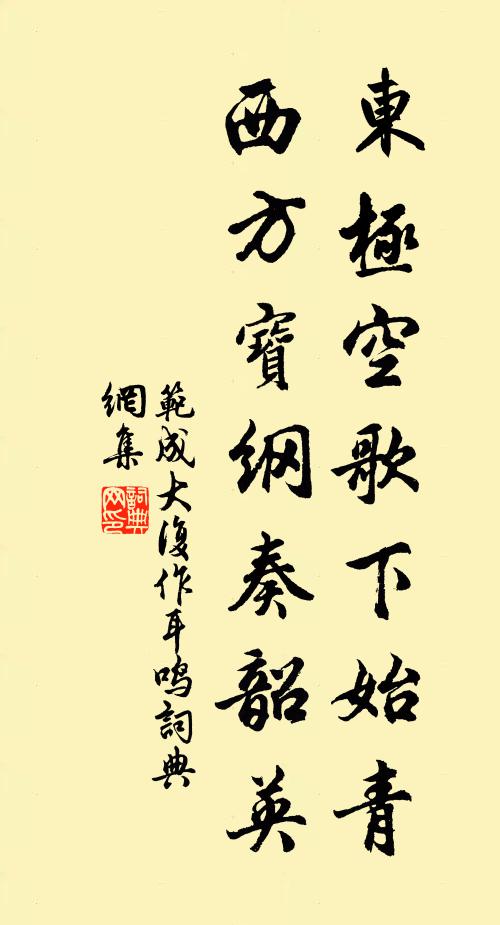 東極空歌下始青
西方寶纲奏韶英
範成大復作耳鳴詞典
網集
詞典
网印